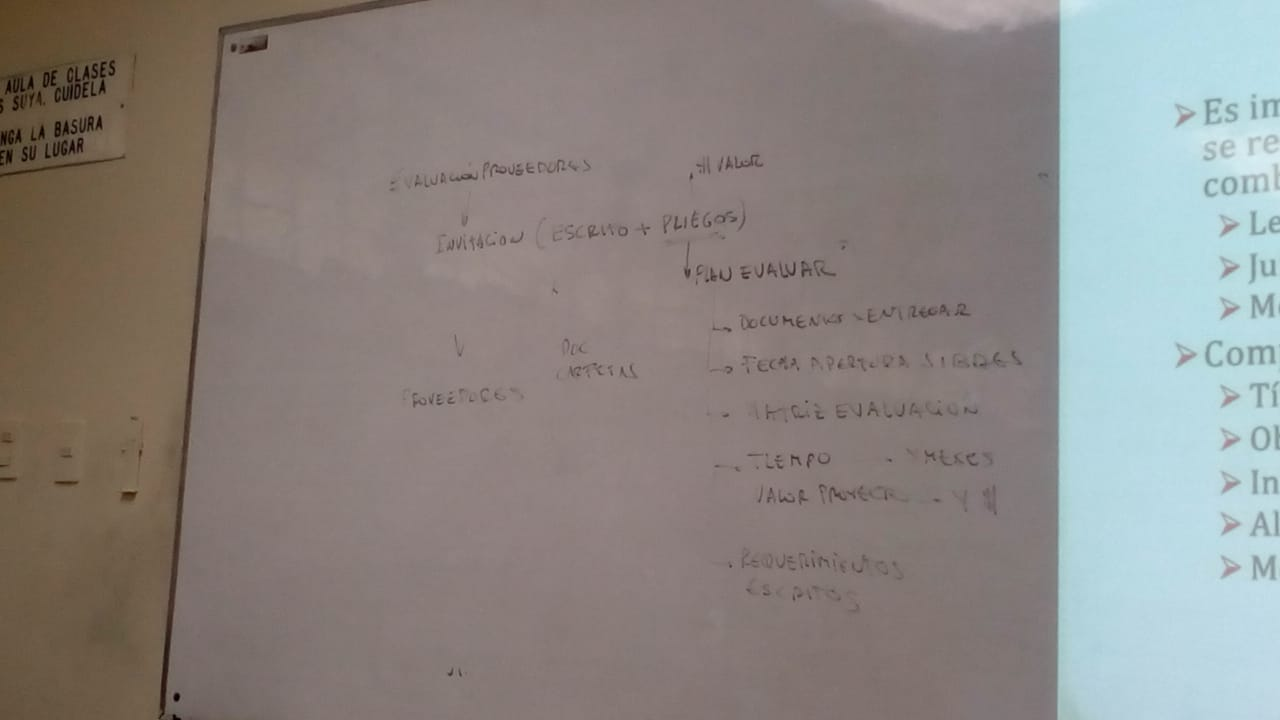 AULA DE CLASES
S SUYA, CUIDELA
NGA LA BASURA
EN SU LUGAR
EVALUACIÓN PROVEEDORES
$ VALOR
INVITACION (ESCRITO + PLIEGOS)
PLAN EVALUAR
DOCUMENTOS ENTREGAR
FECHA APERTURA SOBRES
DOC
CARPETAS
PROVEEDORES
MATRIZ EVALUACION
TIEMPO - X MESES
VALOR PROYECTO - Y $
REQUERIMIENTOS
ESCRITOS
➢ Es im
se re
comb
➢ Le
➢ Ju
➢ Me
➢ Comp
➢ Tí
➢ Ob
➢ In
➢ Al
➢ Me